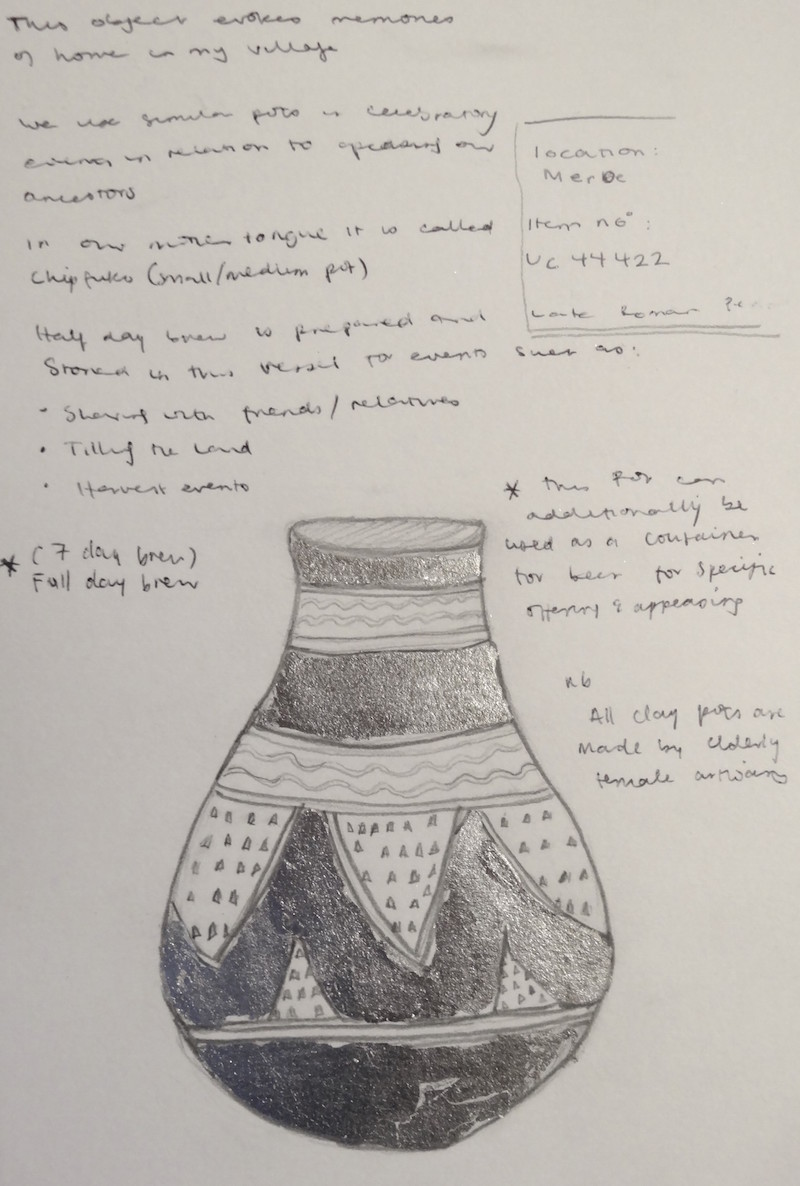 This object evokes memories
of home in my village
We use similar pots in celebratory
events in relation to appeasing our
ancestors
In our mother tongue it is called
Chipfuko (small/medium pot)
Half day brew is prepared and
Stored in this vessel for events such as:
• Sharing with friends/relatives
• Tilling the land
• Harvest events
location:
Meroe
Item no:
UC 44422
Late Roman
* (7 day brew)
Full day brew
* This pot can
additionally be
used as a container
for beer for specific
offering & appeasing
nb
All clay pots are
made by elderly
female artisans